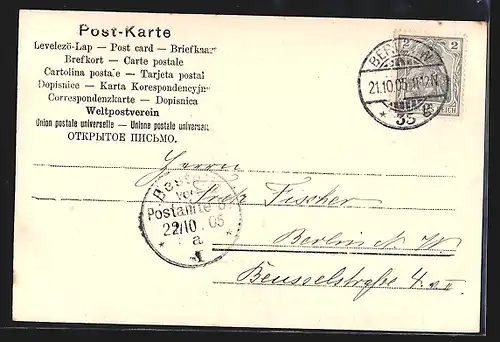 Post-Karte
Levelező-Lap — Post card — Briefkaar
Brefkort — Carte postale
Cartolina postale — Tarjeta postal
Dopisnice — Karta Korespondencyjn
Correspondenzkarte — Dopisnica
Weltpostverein
Union postale universelle — Unione postale universar
ОТКРЫТОЕ ПИСЬМО.
2
BERLIN W
21.10.05.11-12 V.
* 35 *
Herrn
Fischer
Berlin N. W.
Beusselstraße 4
Best
Postamte
22/10.05
* a *